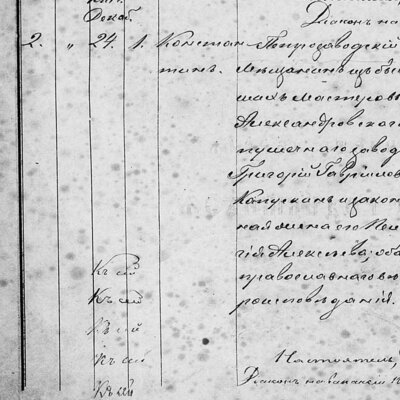 Декаб.
Діаконъ на
2. " 24. 1. Констан- Петрозаводскій
тинъ. Мѣщанинъ изъ бы
шихъ мастеров
Александровскаго
пушечнаго завод
Григорій Гаврілов
Капускинъ и закон
ная жена его Пела
гія Алексѣева; оба
православнаго вѣ
роисповѣданія.
Къ сей
Къ сей
Къ сей
Къ сей
Къ сей
Настоятель,
Діаконъ на вакансіи